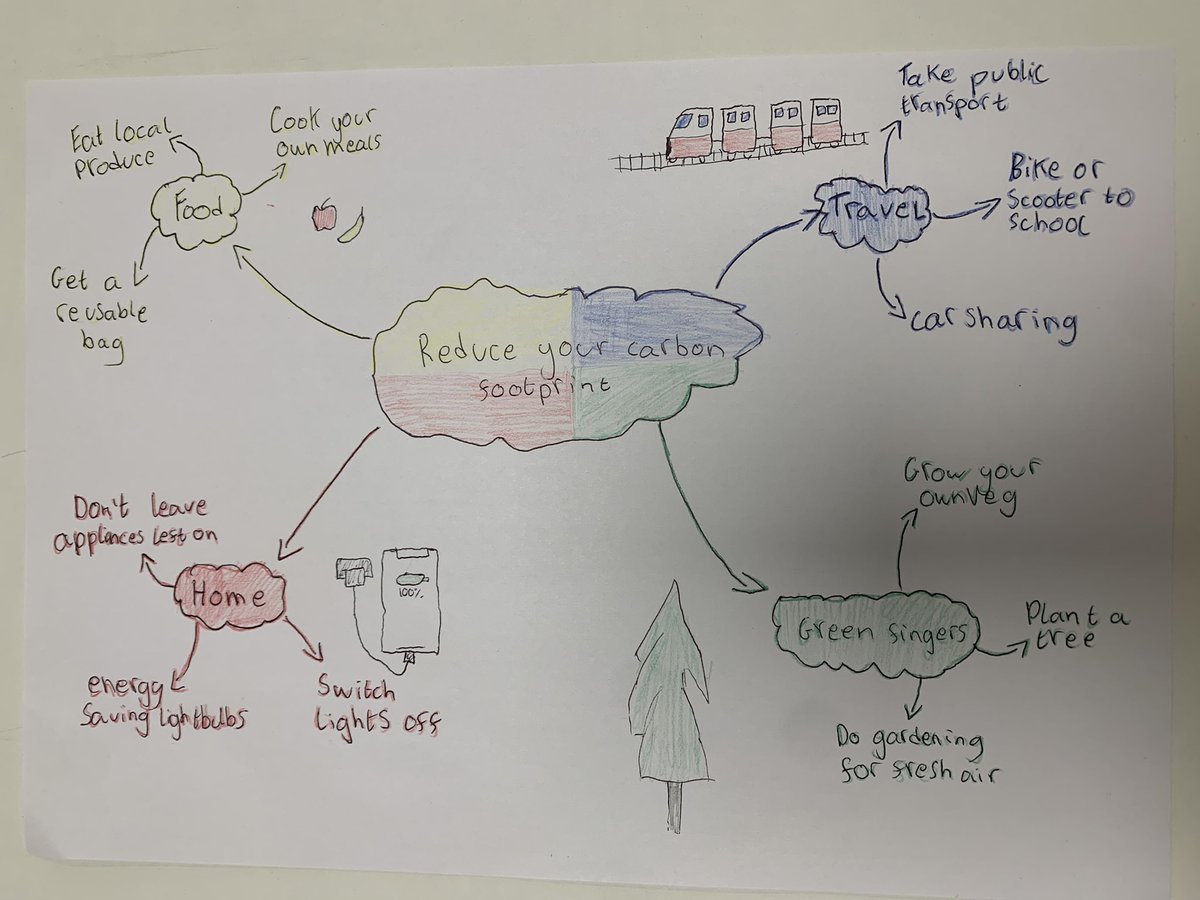 Eat local
produce
Cook your
own meals
Food
Get a
reusable
bag
Take public
transport
Travel
Bike or
Scooter to
school
car sharing
Reduce your carbon
footprint
Don't leave
appliances left on
Home
energy
Saving lightbulbs
Switch
lights off
100%
Grow your
own veg
Green fingers
Plant a
tree
Do gardening
for fresh air